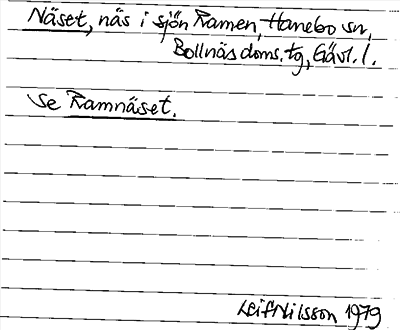 Näset, näs i sjön Ramen, Hanebo sn,
Bollnäs doms. tg, Gävl. l.
Se Ramnäset.
Leif Nilsson 1979